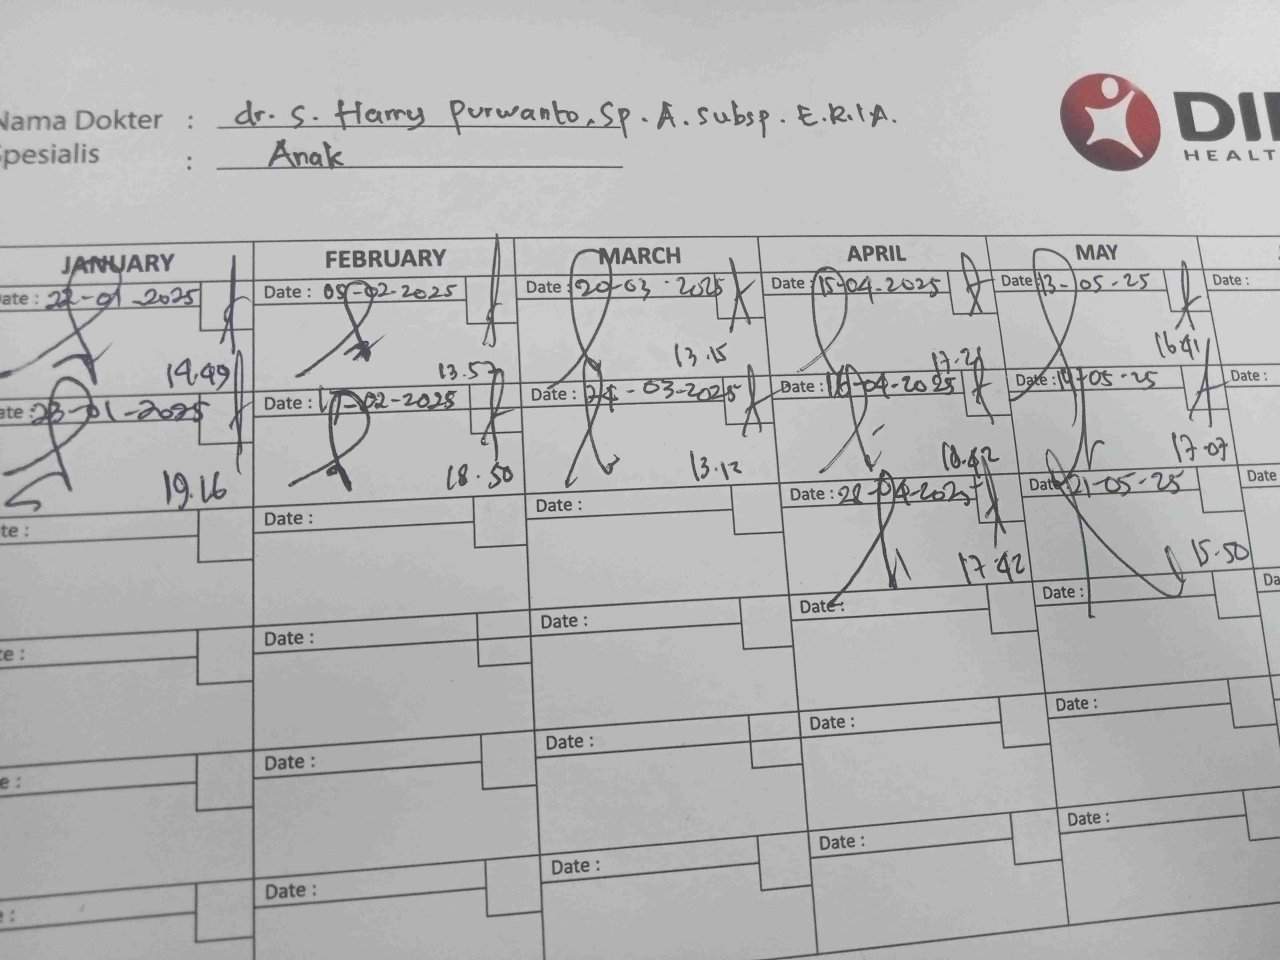 Nama Dokter : dr. S. Harry Purwanto, Sp. A. Subsp. E.R.I.A.
Spesialis : Anak
DI
HEALT
JANUARY FEBRUARY MARCH APRIL MAY
Date : 22-01-2025 Date : 05-02-2025 Date : 20-03-2025 Date : 15-04-2025 Date : 13-05-25 Date :
14.49 13.57 13.15 17.21 16.41
Date : 23-01-2025 Date : 17-02-2025 Date : 24-03-2025 Date : 16-04-2025 Date : 14-05-25 Date :
19.16 18.50 13.12 18.42 17.07
Date : Date : Date : Date : 28-04-2025 Date : 21-05-25 Date
17.42 15.50
Date : Date : Date : Date : Date : Da
Date : Date : Date : Date : Date :
Date : Date : Date : Date : Date :